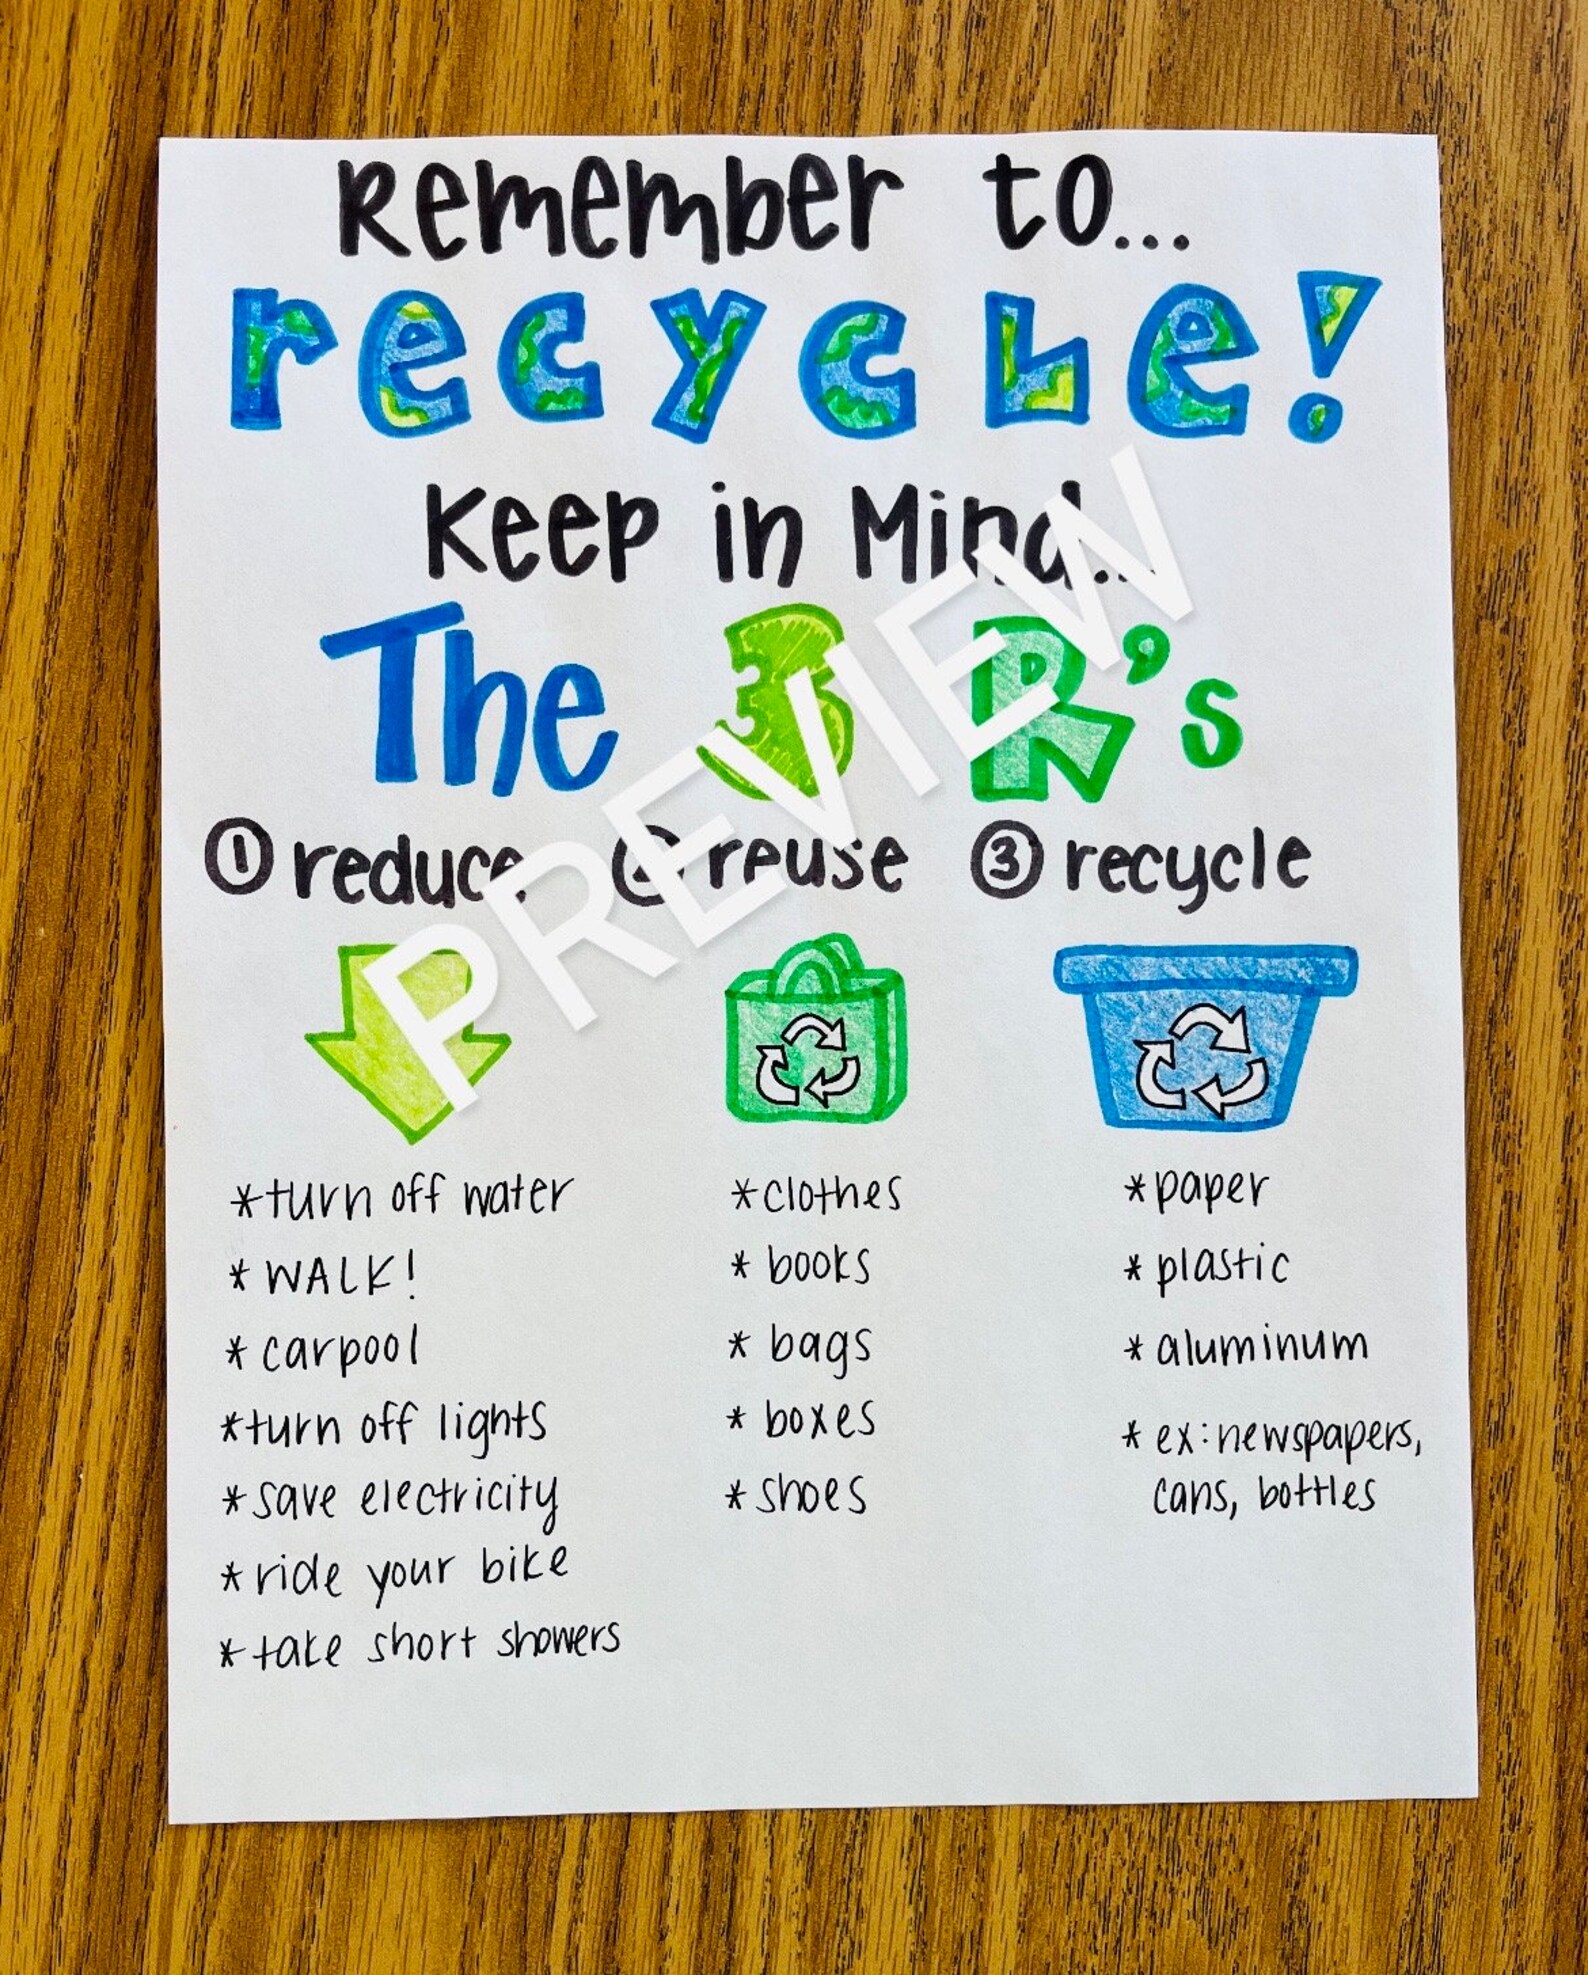 Remember to...
recycle!
Keep in Mind...
The 3 R's
① reduce ② reuse ③ recycle
*turn off water
*WALK!
*carpool
*turn off lights
*save electricity
*ride your bike
*take short showers
*clothes
*books
*bags
*boxes
*shoes
*paper
*plastic
*aluminum
*ex: newspapers,
cans, bottles
PREVIEW